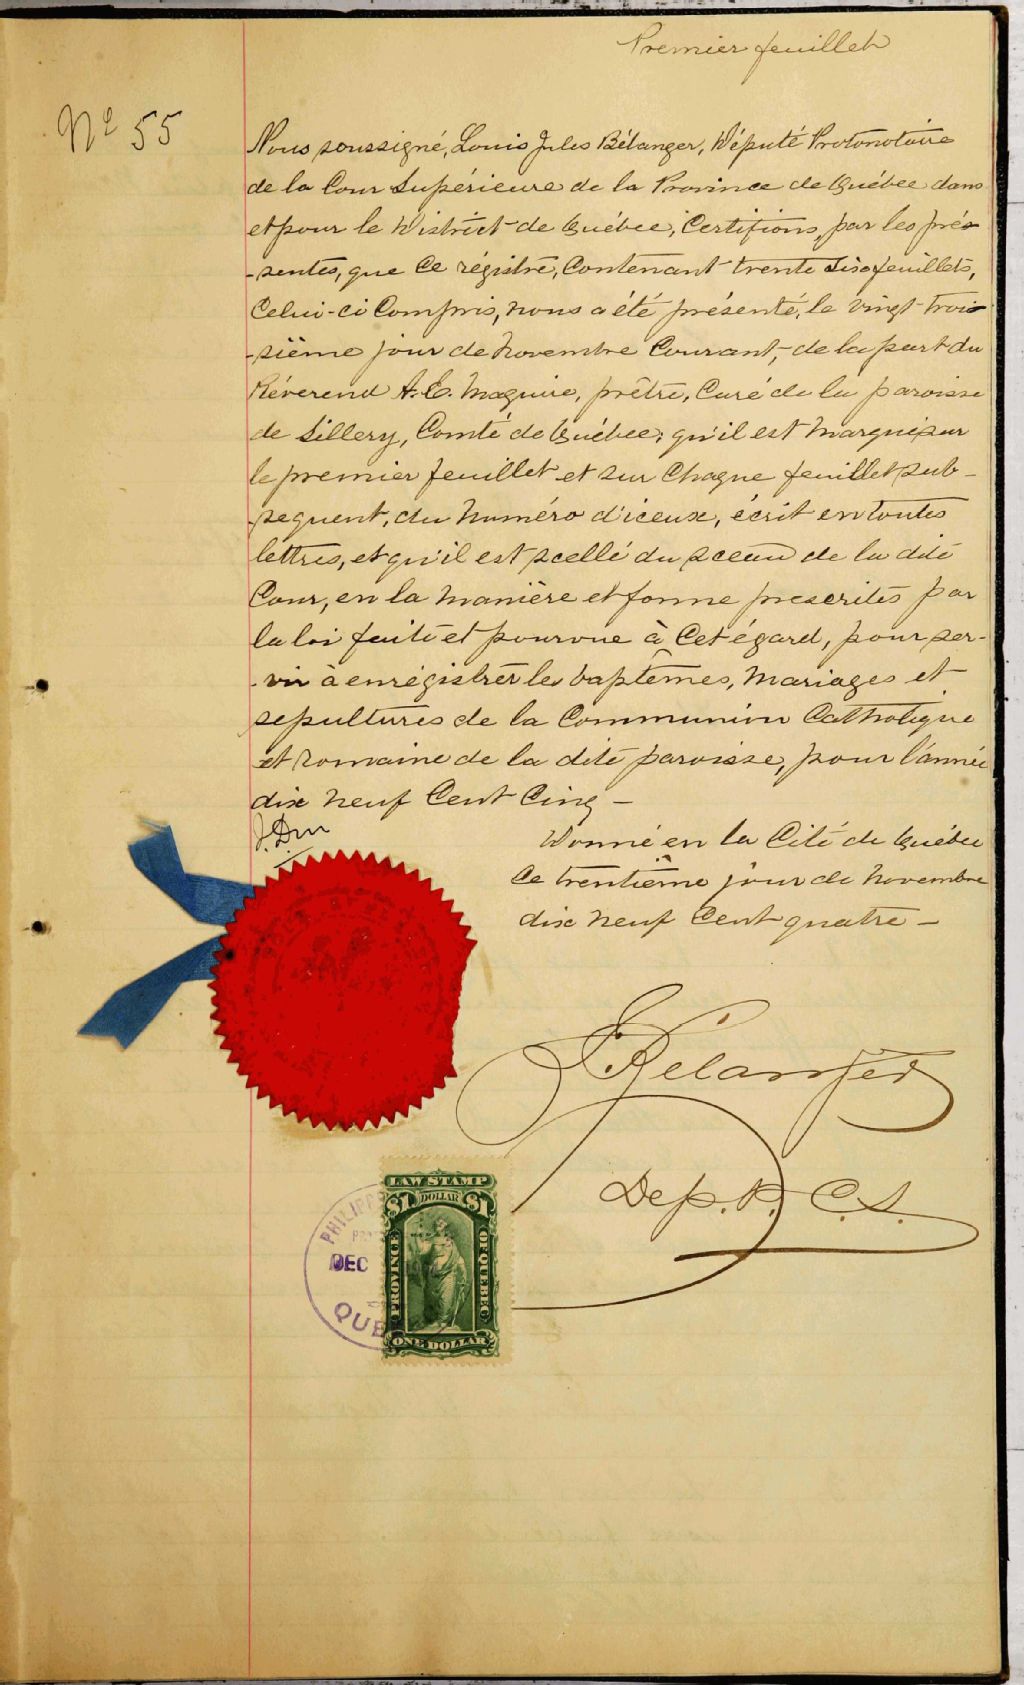 Premier feuillet
No 55
Nous soussigné, Louis Jules Bélanger, Député Protonotaire
de la Cour Supérieure de la Province de Québec dans
et pour le District de Québec, Certifions, par les pré-
-sentes, que Ce régistre, Contenant trente six feuillets,
Celui-ci Compris, nous a été présenté, le vingt-troi-
-sième jour de Novembre Courant, de la part du
Révérend A. E. Maguire, prêtre, Curé de la paroisse
de Sillery, Comté de Québec; qu'il est Marqué sur
le premier feuillet et sur Chaque feuillet sub-
-séquent, du Numéro d'iceux, écrit en toutes
lettres, et qu'il est scellé du sceau de la dite
Cour, en la Manière et forme prescrites par
la loi faite et pourvue à Cet égard, pour ser-
-vir à enrégistrer les baptêmes, Mariages et
sépultures de la Communion Catholique
et Romaine de la dite paroisse, pour l'année
dix Neuf Cent Cinq -
Donné en la Cité de Québec
Ce trentième jour de Novembre
dix Neuf Cent quatre -
Belanger
Dep. P. C. S.
LAW STAMP
$1 DOLLAR $1
PROVINCE OF QUEBEC
ONE DOLLAR
DEC